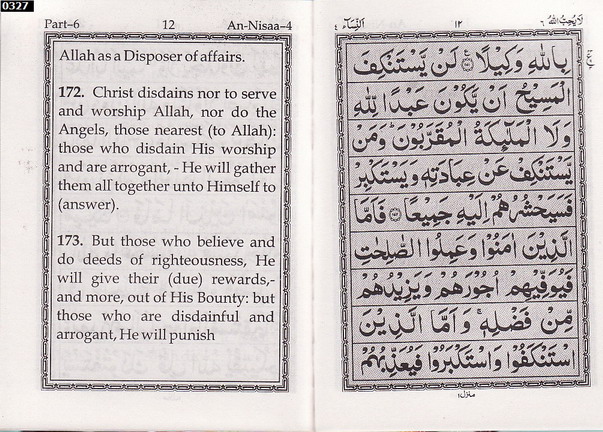 0327
Part–6 12 An-Nisaa–4
Allah as a Disposer of affairs.
172. Christ disdains nor to serve
and worship Allah, nor do the
Angels, those nearest (to Allah):
those who disdain His worship
and are arrogant, - He will gather
them all together unto Himself to
(answer).
173. But those who believe and
do deeds of righteousness, He
will give their (due) rewards,-
and more, out of His Bounty: but
those who are disdainful and
arrogant, He will punish
لَا يُحِبُّ اللهُ ٦ ١٢ النِّسَآء ٤
بِاللّٰهِ وَكِيْلًا ۞ لَنْ يَّسْتَنْكِفَ
الْمَسِيْحُ اَنْ يَّكُوْنَ عَبْدًا لِّلّٰهِ
وَلَا الْمَلٰٓئِكَةُ الْمُقَرَّبُوْنَ ؕ وَمَنْ
يَّسْتَنْكِفْ عَنْ عِبَادَتِهٖ وَيَسْتَكْبِرْ
فَسَيَحْشُرُهُمْ اِلَيْهِ جَمِيْعًا ۞ فَاَمَّا
الَّذِيْنَ اٰمَنُوْا وَعَمِلُوا الصّٰلِحٰتِ
فَيُوَفِّيْهِمْ اُجُوْرَهُمْ وَيَزِيْدُهُمْ
مِّنْ فَضْلِهٖ ۚ وَاَمَّا الَّذِيْنَ
اسْتَنْكَفُوْا وَاسْتَكْبَرُوْا فَيُعَذِّبُهُمْ